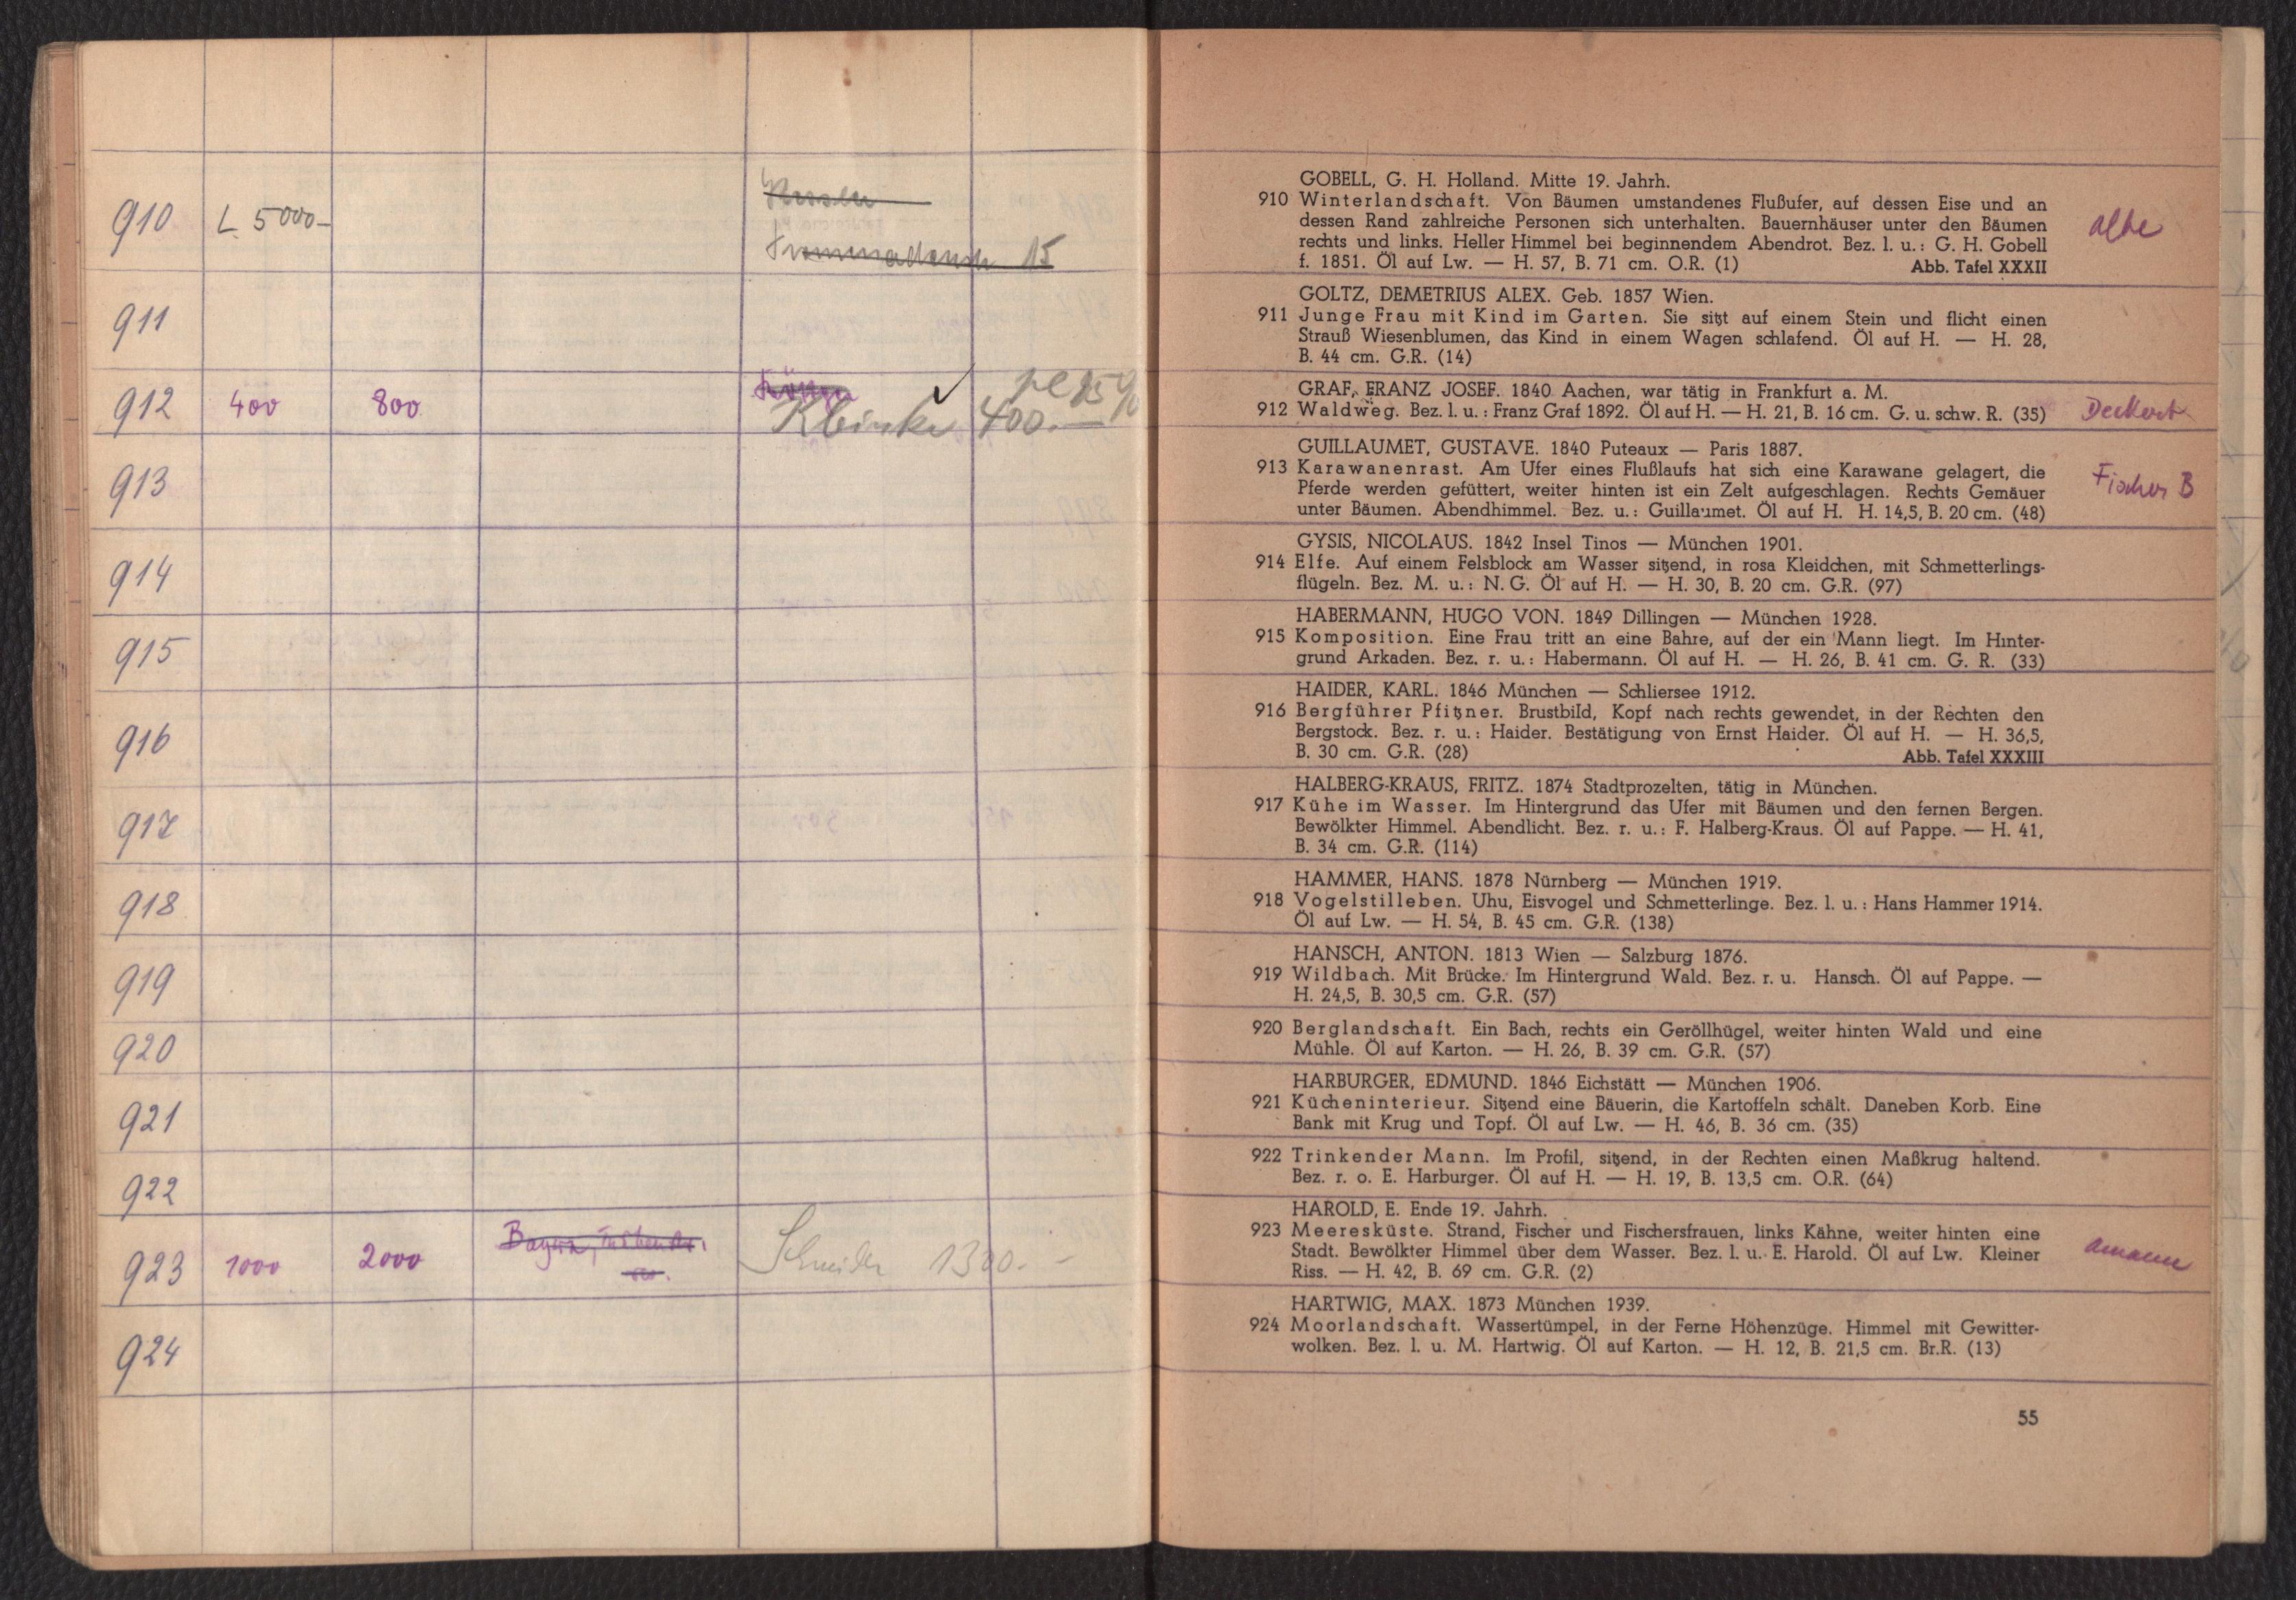 910 L. 5000.–
15
911
912 400 800 Kleinke 400.—
913
914
915
916
917
918
919
920
921
922
923 1000 2000 Schneider 1300.–
924
GOBELL, G. H. Holland. Mitte 19. Jahrh.
910 Winterlandschaft. Von Bäumen umstandenes Flußufer, auf dessen Eise und an
dessen Rand zahlreiche Personen sich unterhalten. Bauernhäuser unter den Bäumen
rechts und links. Heller Himmel bei beginnendem Abendrot. Bez. l. u.: G. H. Gobell
f. 1851. Öl auf Lw. — H. 57, B. 71 cm. O.R. (1) Abb. Tafel XXXII
GOLTZ, DEMETRIUS ALEX. Geb. 1857 Wien.
911 Junge Frau mit Kind im Garten. Sie sitzt auf einem Stein und flicht einen
Strauß Wiesenblumen, das Kind in einem Wagen schlafend. Öl auf H. — H. 28,
B. 44 cm. G.R. (14)
GRAF, FRANZ JOSEF. 1840 Aachen, war tätig in Frankfurt a. M.
912 Waldweg. Bez. l. u.: Franz Graf 1892. Öl auf H. — H. 21, B. 16 cm. G. u. schw. R. (35) Deckert
GUILLAUMET, GUSTAVE. 1840 Puteaux — Paris 1887.
913 Karawanenrast. Am Ufer eines Flußlaufs hat sich eine Karawane gelagert, die
Pferde werden gefüttert, weiter hinten ist ein Zelt aufgeschlagen. Rechts Gemäuer Fischer B
unter Bäumen. Abendhimmel. Bez. u.: Guillaumet. Öl auf H. H. 14,5, B. 20 cm. (48)
GYSIS, NICOLAUS. 1842 Insel Tinos — München 1901.
914 Elfe. Auf einem Felsblock am Wasser sitzend, in rosa Kleidchen, mit Schmetterlings-
flügeln. Bez. M. u.: N. G. Öl auf H. — H. 30, B. 20 cm. G.R. (97)
HABERMANN, HUGO VON. 1849 Dillingen — München 1928.
915 Komposition. Eine Frau tritt an eine Bahre, auf der ein Mann liegt. Im Hinter-
grund Arkaden. Bez. r. u.: Habermann. Öl auf H. — H. 26, B. 41 cm. G. R. (33)
HAIDER, KARL. 1846 München — Schliersee 1912.
916 Bergführer Pfitzner. Brustbild, Kopf nach rechts gewendet, in der Rechten den
Bergstock. Bez. r. u.: Haider. Bestätigung von Ernst Haider. Öl auf H. — H. 36,5,
B. 30 cm. G.R. (28) Abb. Tafel XXXIII
HALBERG-KRAUS, FRITZ. 1874 Stadtprozelten, tätig in München.
917 Kühe im Wasser. Im Hintergrund das Ufer mit Bäumen und den fernen Bergen.
Bewölkter Himmel. Abendlicht. Bez. r. u.: F. Halberg-Kraus. Öl auf Pappe. — H. 41,
B. 34 cm. G.R. (114)
HAMMER, HANS. 1878 Nürnberg — München 1919.
918 Vogelstilleben. Uhu, Eisvogel und Schmetterlinge. Bez. l. u.: Hans Hammer 1914.
Öl auf Lw. — H. 54, B. 45 cm. G.R. (138)
HANSCH, ANTON. 1813 Wien — Salzburg 1876.
919 Wildbach. Mit Brücke. Im Hintergrund Wald. Bez. r. u. Hansch. Öl auf Pappe. —
H. 24,5, B. 30,5 cm. G.R. (57)
920 Berglandschaft. Ein Bach, rechts ein Geröllhügel, weiter hinten Wald und eine
Mühle. Öl auf Karton. — H. 26, B. 39 cm. G.R. (57)
HARBURGER, EDMUND. 1846 Eichstätt — München 1906.
921 Kücheninterieur. Sitzend eine Bäuerin, die Kartoffeln schält. Daneben Korb. Eine
Bank mit Krug und Topf. Öl auf Lw. — H. 46, B. 36 cm. (35)
922 Trinkender Mann. Im Profil, sitzend, in der Rechten einen Maßkrug haltend.
Bez. r. o. E. Harburger. Öl auf H. — H. 19, B. 13,5 cm. O.R. (64)
HAROLD, E. Ende 19. Jahrh.
923 Meeresküste. Strand, Fischer und Fischersfrauen, links Kähne, weiter hinten eine
Stadt. Bewölkter Himmel über dem Wasser. Bez. l. u. E. Harold. Öl auf Lw. Kleiner amann
Riss. — H. 42, B. 69 cm. G.R. (2)
HARTWIG, MAX. 1873 München 1939.
924 Moorlandschaft. Wassertümpel, in der Ferne Höhenzüge. Himmel mit Gewitter-
wolken. Bez. l. u. M. Hartwig. Öl auf Karton. — H. 12, B. 21,5 cm. Br.R. (13)
55